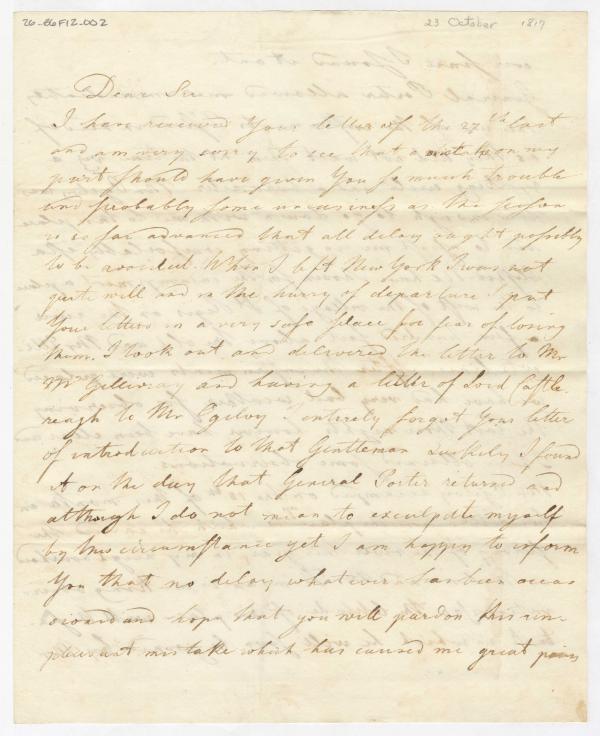 26-86F12.002
23 October 1817
Dear Sir
I have received Your letter of the 27th last
and am very sorry to see that a mistake on my
part should have given You so much trouble
and probably some uneasiness as the season
is so far advanced that all delay ought possibly
to be avoided. When I left New York I was not
quite well and in the hurry of departure I put
Your letters in a very safe place for fear of losing
them. I took out and delivered the letter to Mr
Mc Gillivray and having a letter of Lord Castle-
reagh to Mr Ogilvy I entirely forgot Your letter
of introduction to that Gentleman Luckily I found
it on the day that General Porter returned and
although I do not mean to exculpate myself
by this circumstance yet I am happy to inform
You that no delay whatever has been occa
sioned and hope that you will pardon this un-
pleasant mistake which has caused me great pain